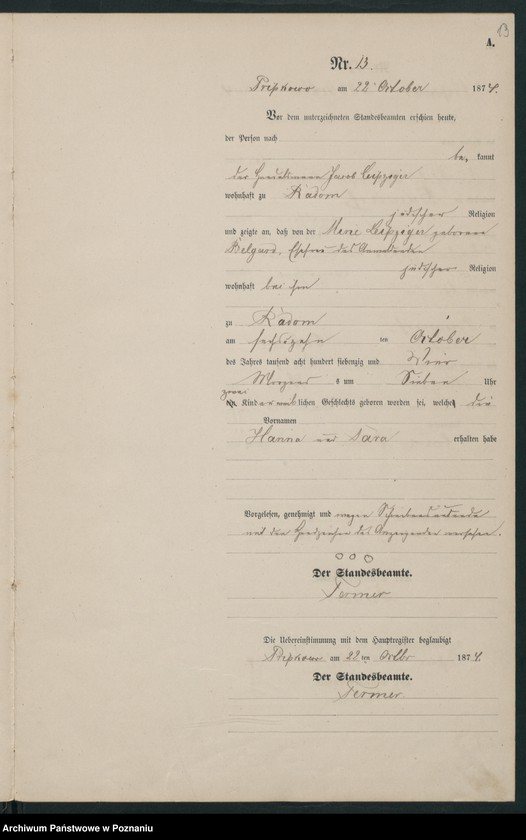 13
A.
Nr. 13.
am 22 October 1874.
Vor dem unterzeichneten Standesbeamten erschien heute,
der Person nach
be kannt
der Handelsmann Jacob
wohnhaft zu Radom
jüdischer Religion
und zeigte an, daß von der Leipzeger geborene
Ehefrau des Anmeldenden
jüdischer Religion
wohnhaft bei ihm
zu Radom
am sechszehn ten October
des Jahres tausend acht hundert siebenzig und Vier
Morgens s um Sieben Uhr
zwei
Kinder weiblichen Geschlechts geboren worden sei, welche die
Vornamen
Hanna und Sara erhalten habe
Vorgelesen, genehmigt und wegen Schreibensunkunde
mit den Handzeichen des Anzeigenden versehen.
o o o
Der Standesbeamte.
Termer
Die Uebereinstimmung mit dem Hauptregister beglaubigt
am 22 ten Octbr 1874.
Der Standesbeamte.
Termer
Archiwum Państwowe w Poznaniu